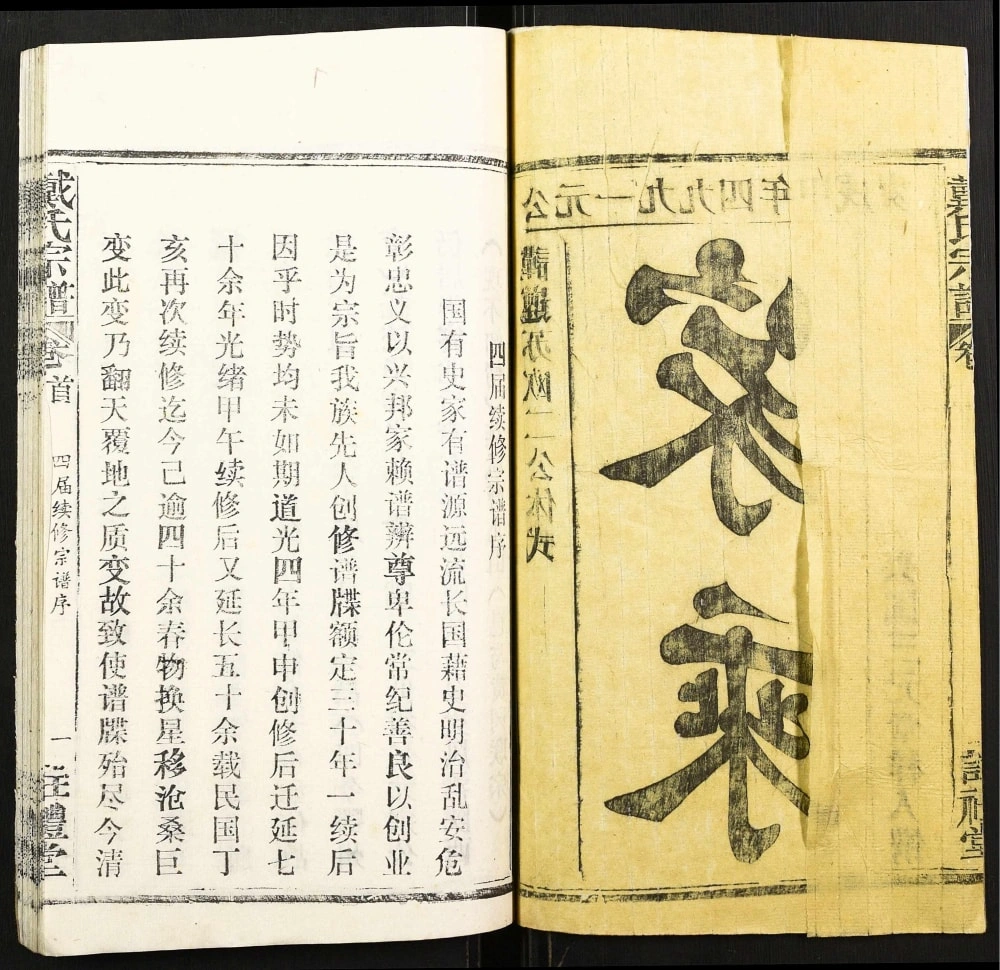 戴氏宗譜 卷
公元一九九四年
家乘
謹遵苏欧二公体式
四届续修宗谱序
国有史家有谱源远流长国藉史明治乱安危
彰忠义以兴邦家赖谱辨尊卑伦常纪善良以创业
是为宗旨我族先人创修谱牒额定三十年一续后
因乎时势均未如期道光四年甲申创修后迁延七
十余年光绪甲午续修后又延长五十余载民国丁
亥再次续修迄今已逾四十余春物换星移沧桑巨
变此变乃翻天覆地之质变故致使谱牒殆尽今清
戴氏宗譜 卷首 四届续修宗谱序 一 禮堂